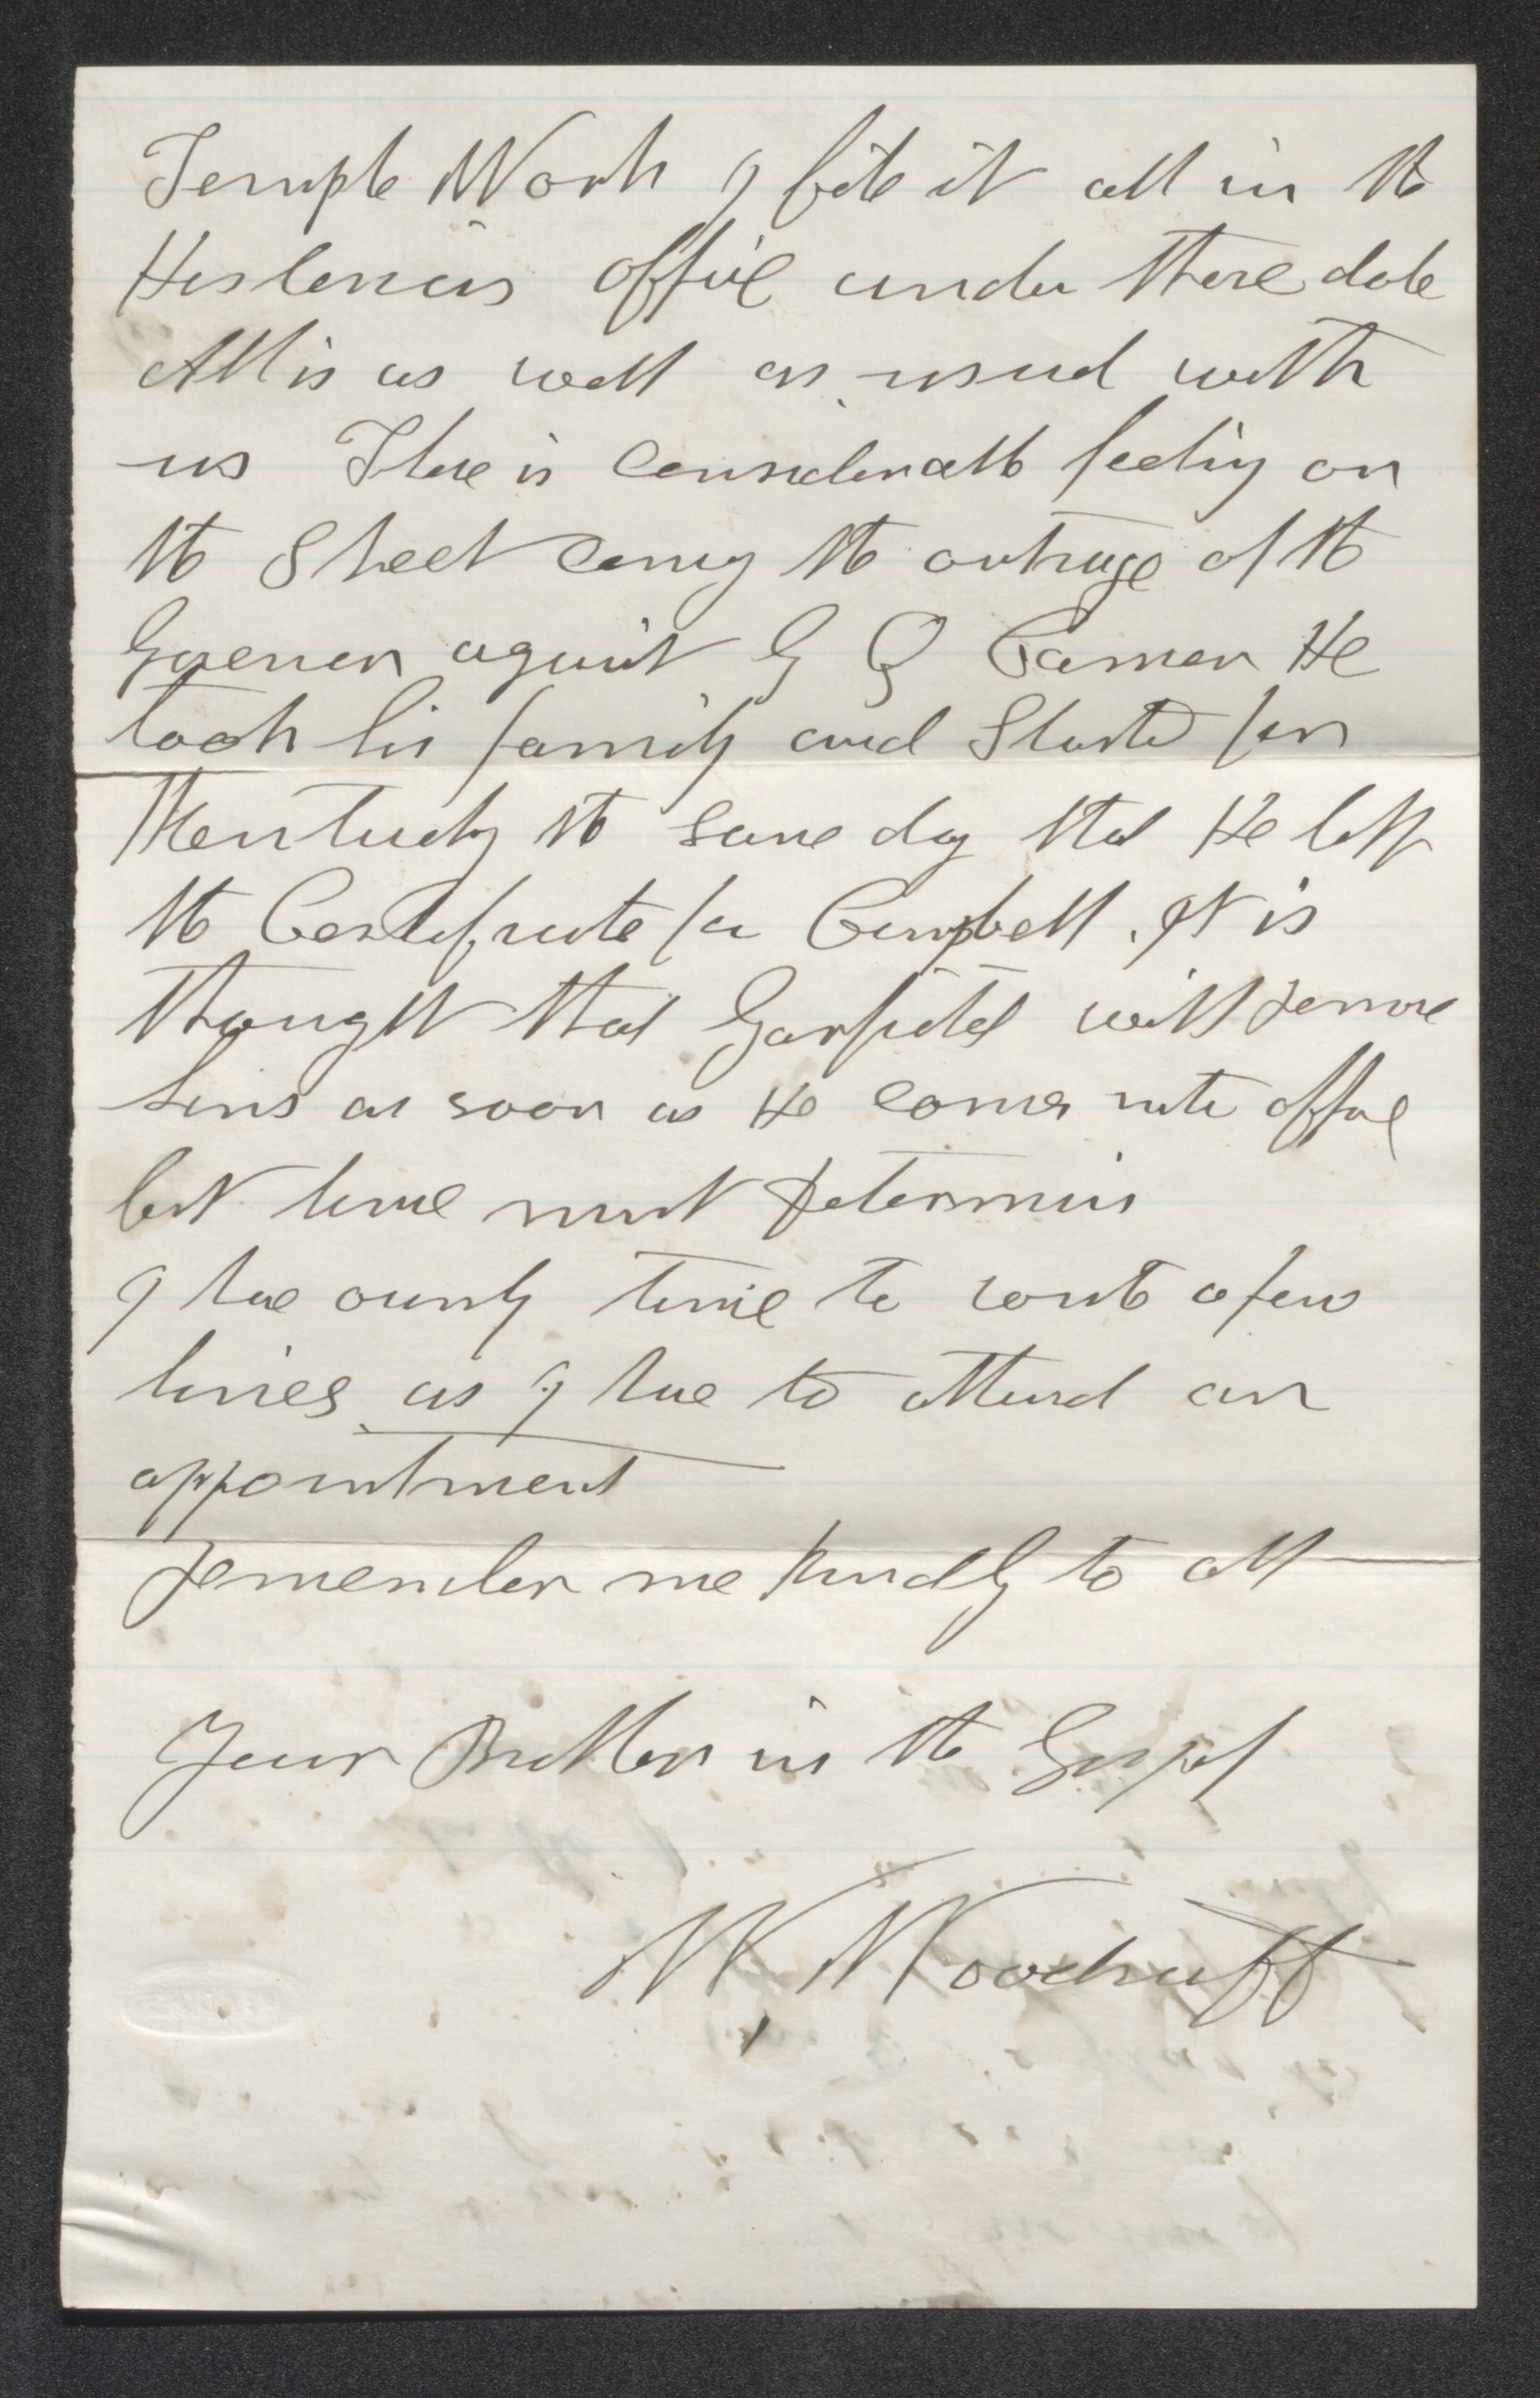 Temple Work I file it all in the
Historians office under there date
All is as well as usual with
us There is considerable feeling on
the Street concerning the outrage of the
Govenor against G Q Cannon He
took his family and Started for
Kentucky the same day that He left
the Certificate for Campbell. It is
thought that Garfield will remove
him as soon as He comes into office
but time must determin
I have ownly time to write a few
lines as I have to attend an
appointment
remember me kindly to all
Your Brother in the Gospel
W. Woodruff